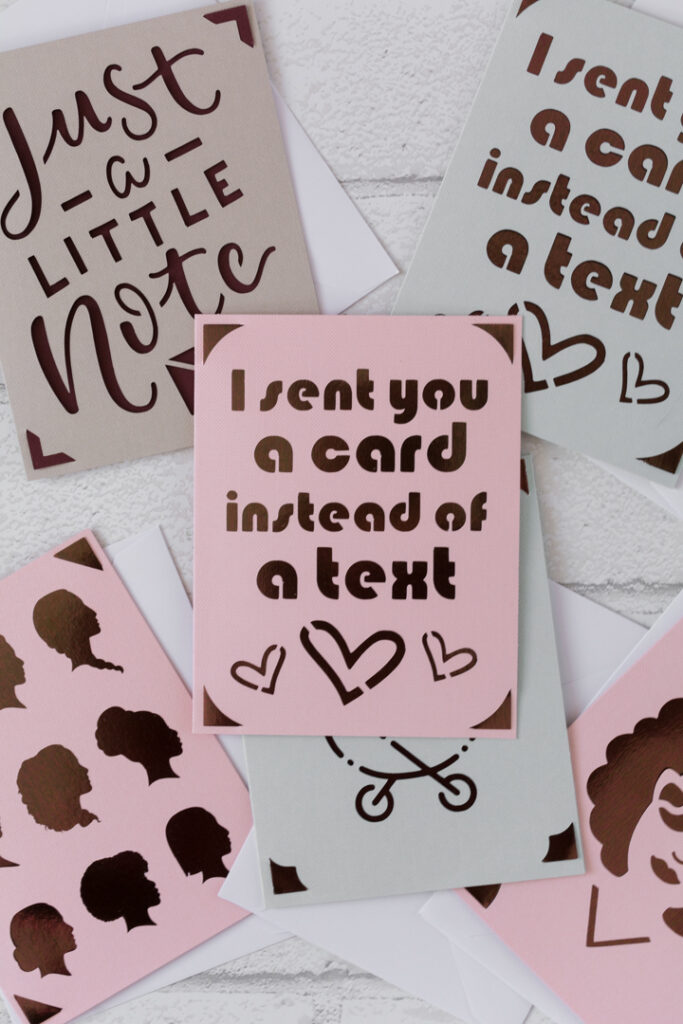 Just
a
LITTLE
Note
I sent
a car
instead
a text
I sent you
a card
instead of
a text